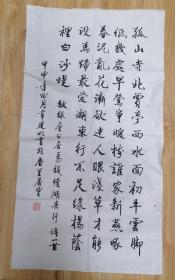 孤山寺北賈亭西水面初平雲脚
低幾處早鶯爭暖樹誰家新燕啄
春泥亂花漸欲迷人眼淺草才能
沒馬蹄最愛湖東行不足綠楊蔭
裡白沙堤 敬録唐白居易錢塘湖春行詩一首
甲申年四月